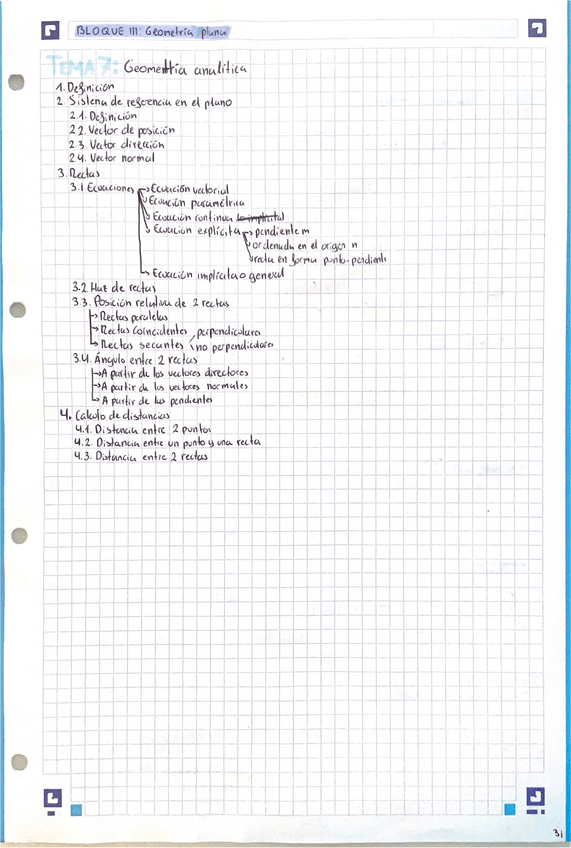 BLOQUE III: Geometría plana
TEMA 7: Geometría analítica
1. Definición
2. Sistema de referencia en el plano
2.1. Definición
2.2. Vector de posición
2.3. Vector dirección
2.4. Vector normal
3. Rectas
3.1 Ecuaciones → Ecuación vectorial
Ecuación paramétrica
Ecuación continua
Ecuación explícita → pendiente m
ordenada en el origen n
recta en forma punto-pendiente
Ecuación implícita o general
3.2. Haz de rectas
3.3. Posición relativa de 2 rectas
→ Rectas paralelas
→ Rectas coincidentes
perpendiculares
→ Rectas secantes no perpendiculares
3.4. Ángulo entre 2 rectas
→ A partir de los vectores directores
→ A partir de los vectores normales
→ A partir de las pendientes
4. Calculo de distancias
4.1. Distancia entre 2 puntos
4.2. Distancia entre un punto y una recta
4.3. Distancia entre 2 rectas
31